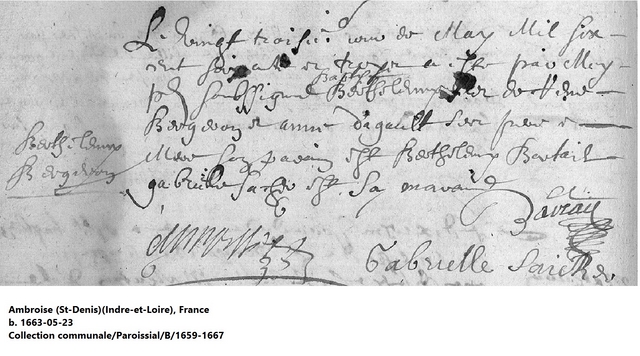 Le vingt troisie jour de May Mil six
cent soixante et troys a este par Moy
baptisé
pbr soubsigne Berthelemy filz de Rene
Bergeron et anne Dagault ses pere et
Mere son parain est Berthelemy
gabrielle est sa maraine
Berthelemy
Bergeron
Gabrielle
Ambroise (St-Denis)(Indre-et-Loire), France
b. 1663-05-23
Collection communale/Paroissial/B/1659-1667